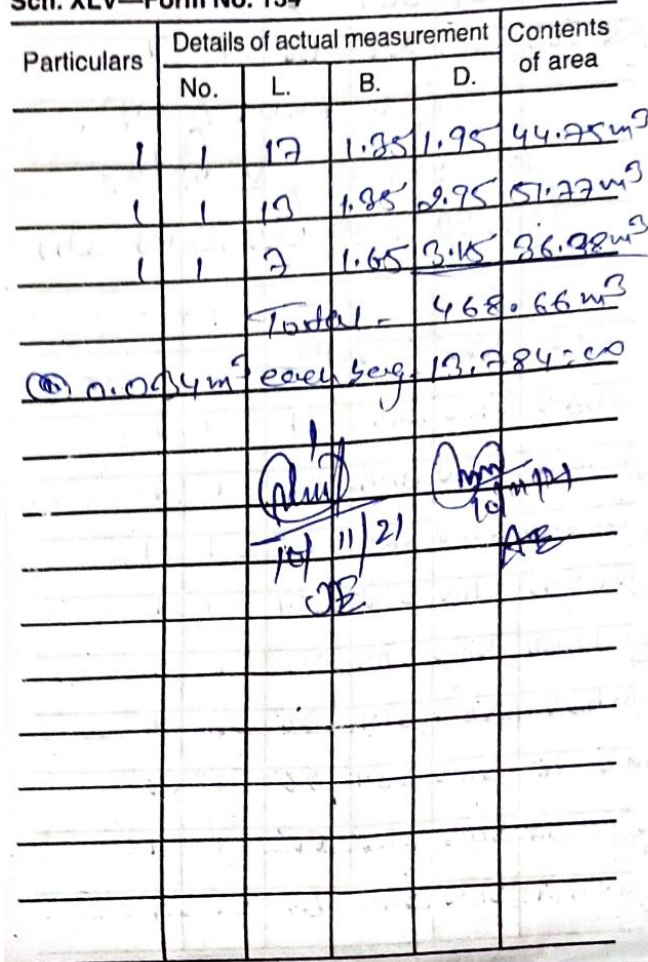 Sch. XLV—Form No. 134
Particulars Details of actual measurement Contents of area
No. L. B. D.
1 1 17 1.35 1.95 44.75m³
1 1 13 1.35 2.95 51.77m³
1 1 7 1.65 3.15 36.38m³
Total - 468.66m³
@ 0.034m³ each beg - 13,784=00
10/11/21
JE
AE